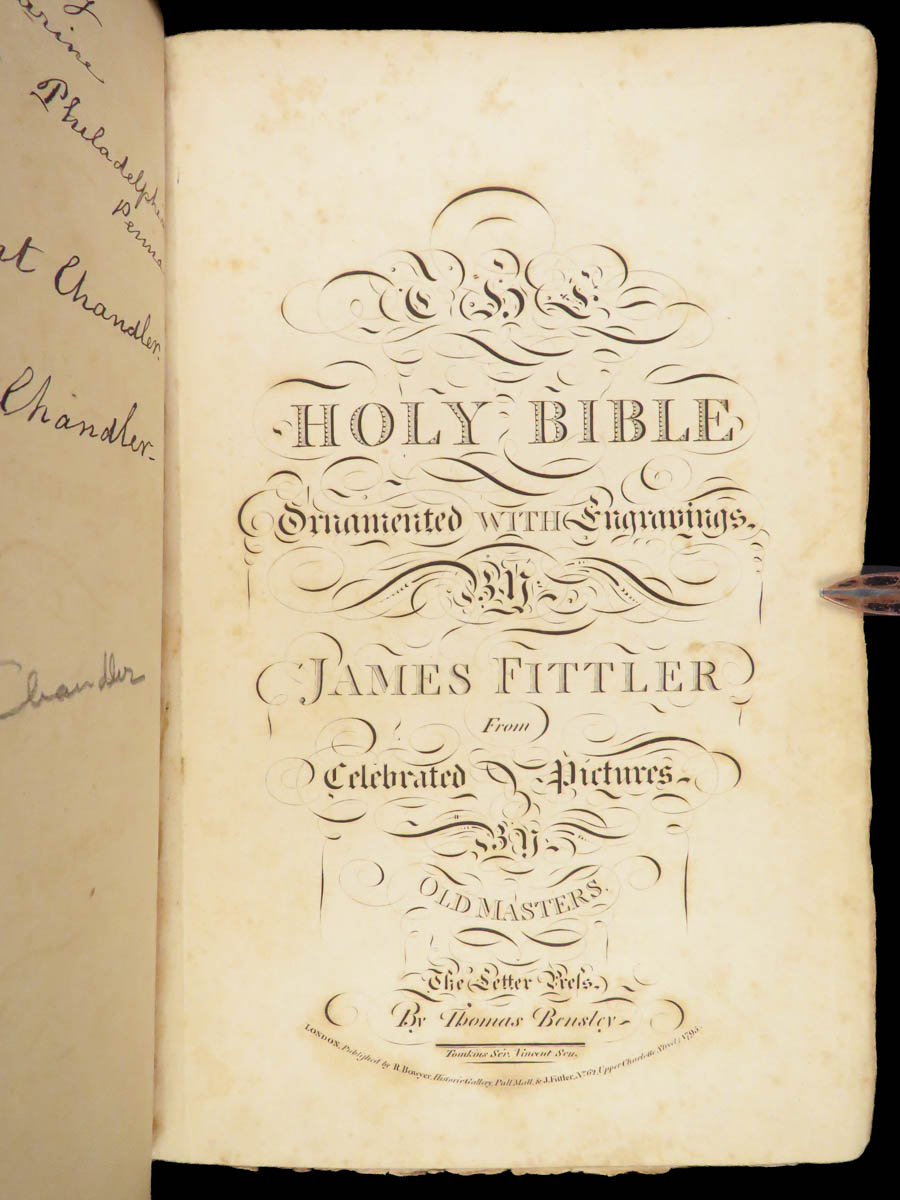 Philadelphia
Penna
Chandler.
Chandler.
Chandler
THE
HOLY BIBLE
Ornamented WITH Engravings.
BY
JAMES FITTLER
From
Celebrated Pictures
BY
OLD MASTERS.
The Letter Preſs.
By Thomas Bensley
Tomkins Scr. Vincent Scu.
LONDON, Published by R. Bowyer, Historic Gallery, Pall Mall, & J. Fittler, No. 62, Upper Charlotte Street, 1795.